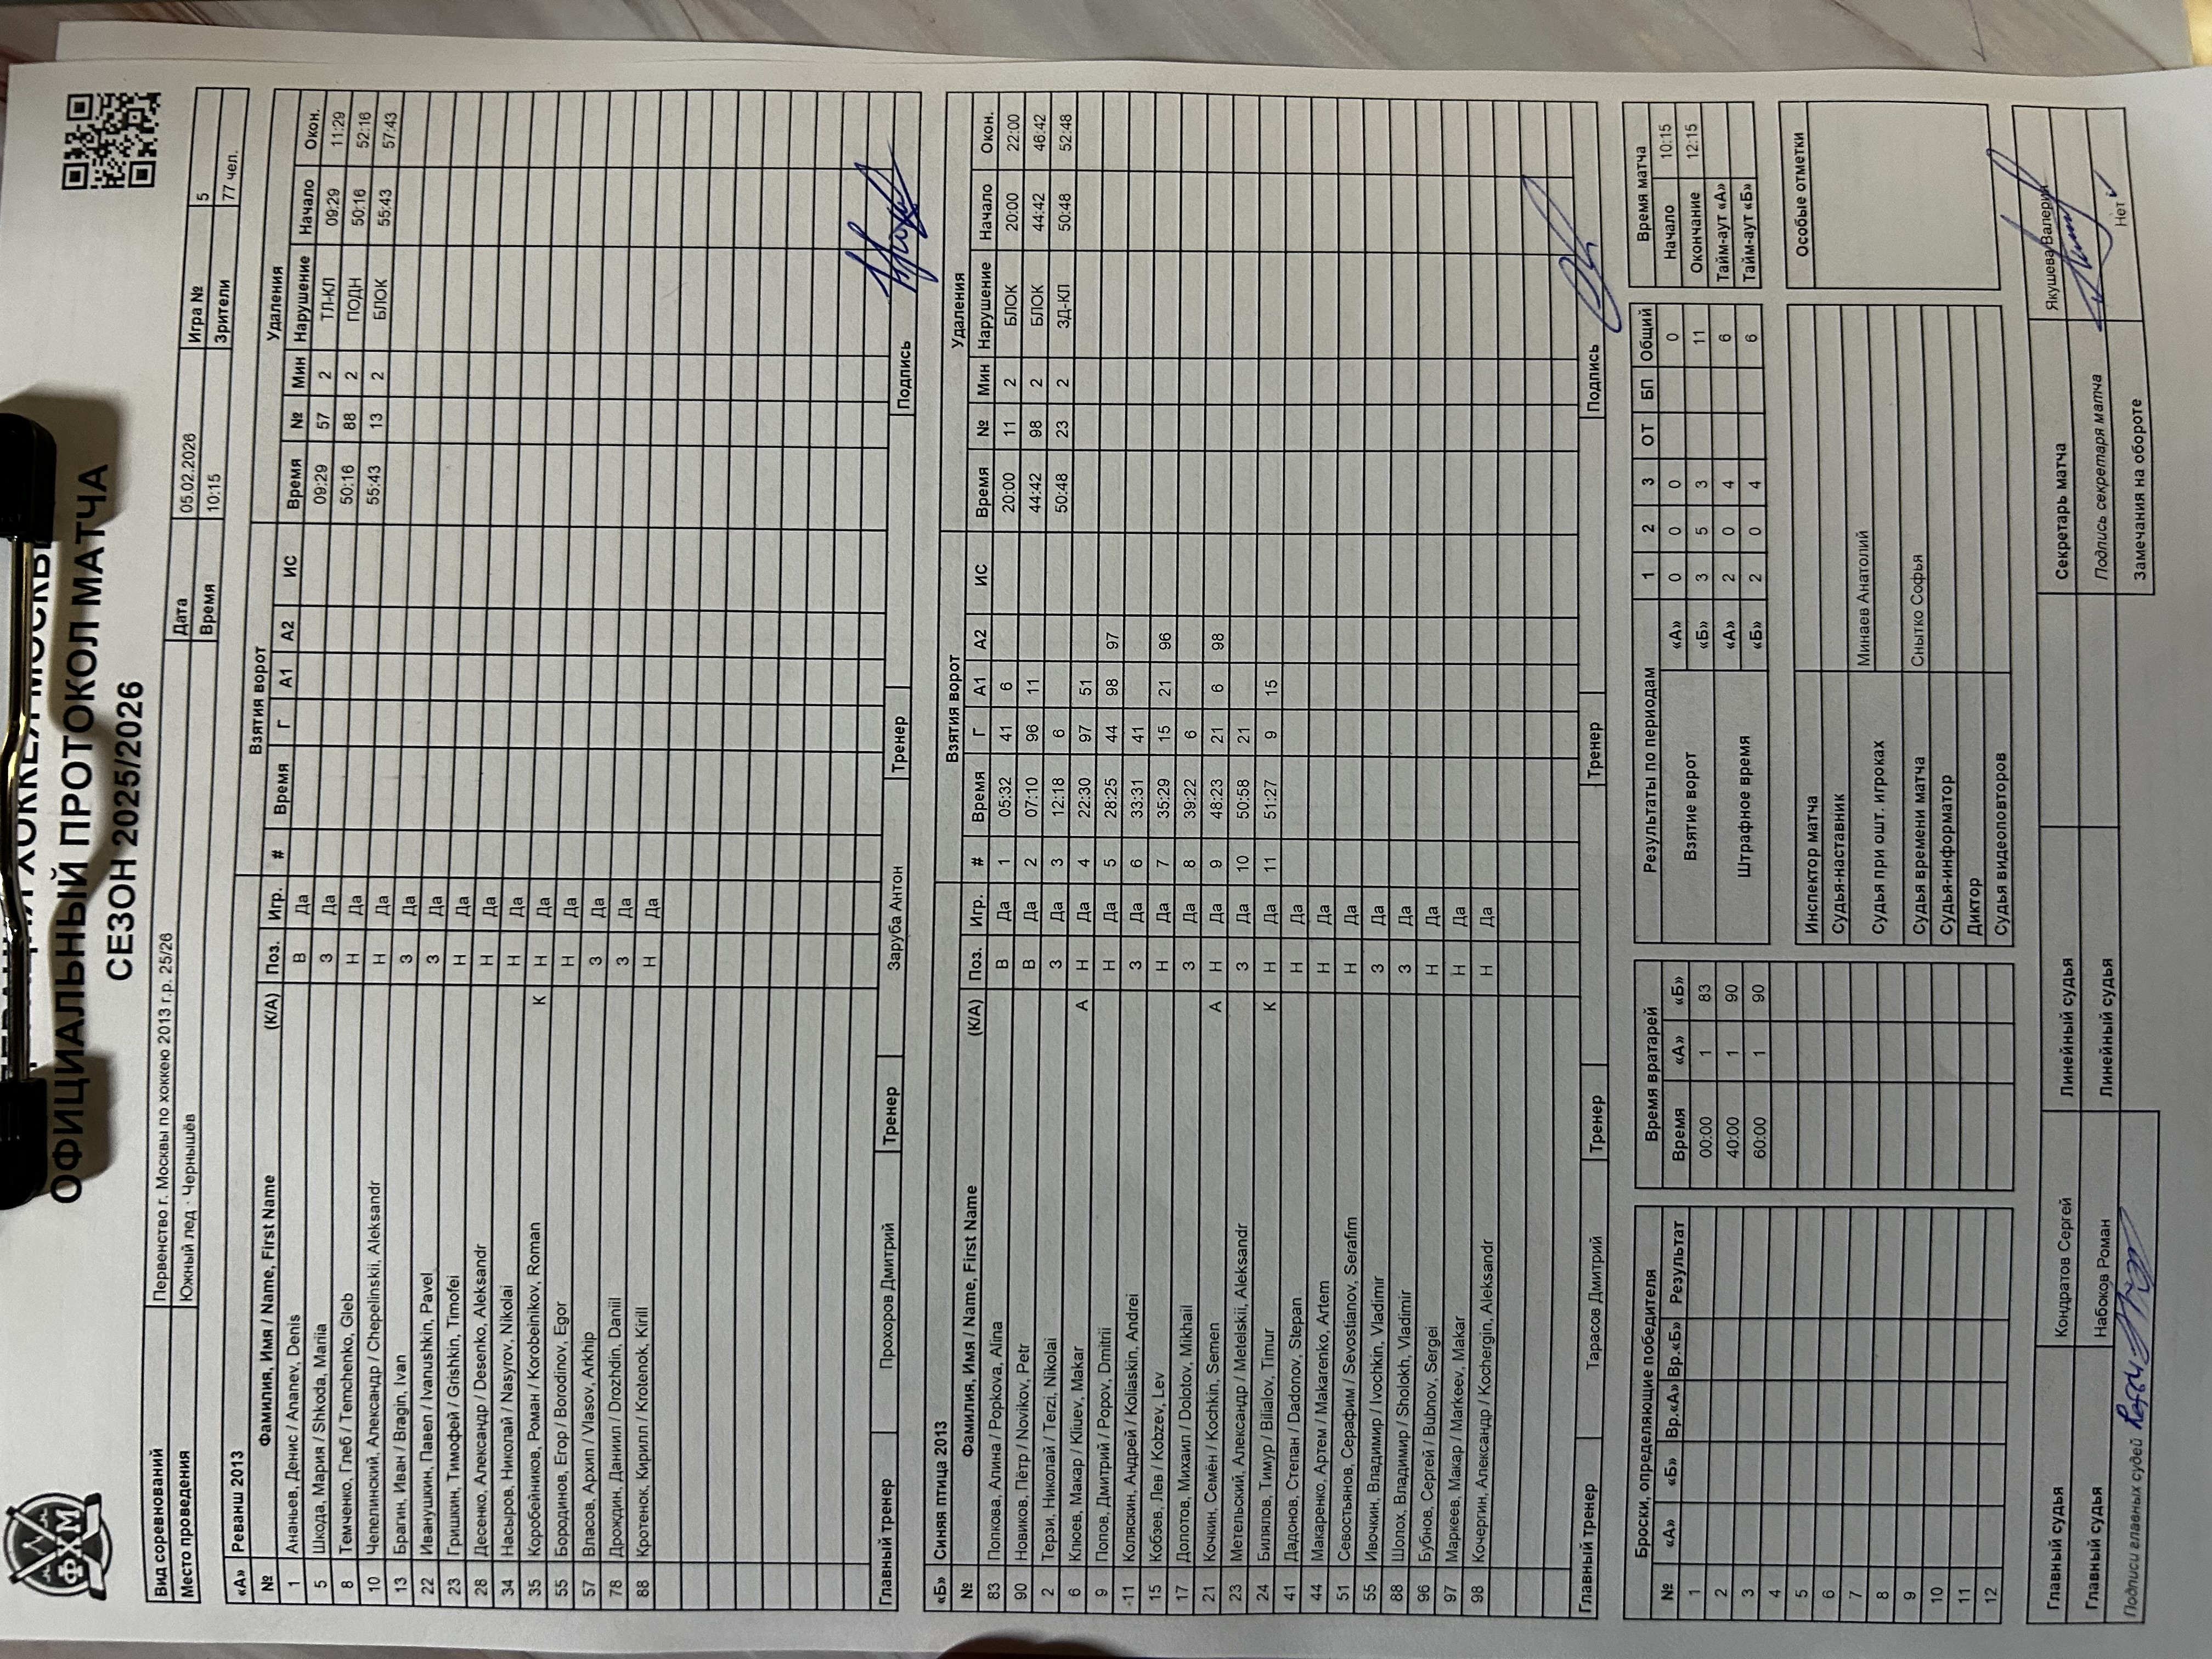 ОФИЦИАЛЬНЫЙ ПРОТОКОЛ МАТЧА
СЕЗОН 2025/2026
ФХМ
Вид соревнований Первенство г. Москвы по хоккею 2013 г.р. 25/26 Дата 05.02.2026 Игра № 5
Место проведения Южный лед - Чернышёв Время 10:15 Зрители 77 чел.
«А» Реванш 2013 Взятия ворот Удаления
№ Фамилия, Имя / Name, First Name (К/А) Поз. Игр. # Время Г А1 А2 ИС Время № Мин Нарушение Начало Окон.
1 Ананьев, Денис / Ananev, Denis В Да 09:29 57 2 ТЛ-КЛ 09:29 11:29
5 Шкода, Мария / Shkoda, Mariia З Да 50:16 88 2 ПОДН 50:16 52:16
8 Темченко, Глеб / Temchenko, Gleb Н Да 55:43 13 2 БЛОК 55:43 57:43
10 Чепелинский, Александр / Chepelinskii, Aleksandr Н Да
13 Брагин, Иван / Bragin, Ivan З Да
22 Иванушкин, Павел / Ivanushkin, Pavel З Да
23 Гришкин, Тимофей / Grishkin, Timofei Н Да
28 Десенко, Александр / Desenko, Aleksandr Н Да
34 Насыров, Николай / Nasyrov, Nikolai Н Да
35 Коробейников, Роман / Korobeinikov, Roman К Н Да
55 Бородинов, Егор / Borodinov, Egor Н Да
57 Власов, Архип / Vlasov, Arkhip З Да
78 Дрождин, Даниил / Drozhdin, Daniil З Да
88 Кротенок, Кирилл / Krotenok, Kirill Н Да
Главный тренер Прохоров Дмитрий Тренер Заруба Антон Тренер Подпись
«Б» Синяя птица 2013 Взятия ворот Удаления
№ Фамилия, Имя / Name, First Name (К/А) Поз. Игр. # Время Г А1 А2 ИС Время № Мин Нарушение Начало Окон.
83 Попкова, Алина / Popkova, Alina В Да 1 05:32 41 6 20:00 11 2 БЛОК 20:00 22:00
90 Новиков, Пётр / Novikov, Petr В Да 2 07:10 96 11 44:42 98 2 БЛОК 44:42 46:42
2 Терзи, Николай / Terzi, Nikolai З Да 3 12:18 6 50:48 23 2 ЗД-КЛ 50:48 52:48
6 Клюев, Макар / Kliuev, Makar А Н Да 4 22:30 97 51
9 Попов, Дмитрий / Popov, Dmitrii Н Да 5 28:25 44 98 97
11 Коляскин, Андрей / Koliaskin, Andrei З Да 6 33:31 41
15 Кобзев, Лев / Kobzev, Lev Н Да 7 35:29 15 21 96
17 Долотов, Михаил / Dolotov, Mikhail З Да 8 39:22 6
21 Кочкин, Семён / Kochkin, Semen А Н Да 9 48:23 21 6 98
23 Метельский, Александр / Metelskii, Aleksandr З Да 10 50:58 21
24 Билялов, Тимур / Bilialov, Timur К Н Да 11 51:27 9 15
41 Дадонов, Степан / Dadonov, Stepan Н Да
44 Макаренко, Артем / Makarenko, Artem Н Да
51 Севостьянов, Серафим / Sevostianov, Serafim Н Да
55 Ивочкин, Владимир / Ivochkin, Vladimir З Да
88 Шолох, Владимир / Sholokh, Vladimir З Да
96 Бубнов, Сергей / Bubnov, Sergei Н Да
97 Маркеев, Макар / Markeev, Makar Н Да
98 Кочергин, Александр / Kochergin, Aleksandr Н Да
Главный тренер Тарасов Дмитрий Тренер Тренер Подпись
Броски, определяющие победителя
№ «А» «Б» Вр.«А» Вр.«Б» Результат
1
2
3
4
5
6
7
8
9
10
11
12
Время вратарей
Время «А» «Б»
00:00 1 83
40:00 1 90
60:00 1 90
Результаты по периодам 1 2 3 ОТ БП Общий
Взятие ворот «А» 0 0 0 0
«Б» 3 5 3 11
Штрафное время «А» 2 0 4 6
«Б» 2 0 4 6
Время матча
Начало 10:15
Окончание 12:15
Тайм-аут «А»
Тайм-аут «Б»
Инспектор матча
Судья-наставник
Судья при ошт. игроках Минаев Анатолий
Судья времени матча Снытко Софья
Судья-информатор
Диктор
Судья видеоповторов
Особые отметки
Главный судья Кондратов Сергей Линейный судья Секретарь матча Якушева Валерия
Главный судья Набоков Роман Линейный судья Подпись секретаря матча
Подписи главных судей Замечания на обороте Нет